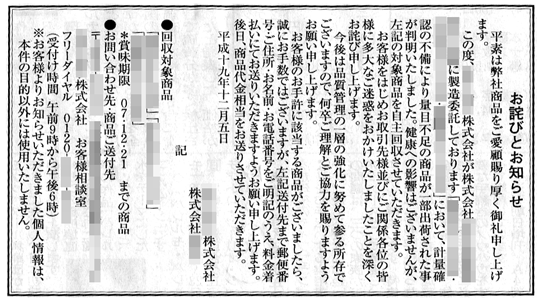 お詫びとお知らせ
平素は弊社商品をご愛顧賜り厚く御礼申し上げ
ます。
この度、
株式会社が株式会社
に製造委託しております「
」において、計量確
認の不備により量目不足の商品が一部出荷された事
が判明いたしました。健康への影響はございませんが、
左記の対象商品を自主回収させていただきます。
お客様をはじめお取引先様並びにご関係各位の皆
様に多大なご迷惑をおかけいたしましたことを深く
お詫び申し上げます。
今後は品質管理の一層の強化に努めて参る所存で
ございますので、何卒ご理解とご協力を賜りますよう
お願い申し上げます。
お客様のお手許に該当する商品がございましたら、
誠にお手数ではございますが、左記送付先まで郵便番
号・ご住所・お名前・お電話番号をご明記のうえ、料金着
払いにてお送りいただきますようお願い申し上げます。
後日、商品代金相当をお送りさせていただきます。
平成十九年十二月五日
株式会社
株式会社
記
●回収対象商品
「
」「
＊賞味期限 07・12・21 までの商品
●お問い合わせ先・商品ご送付先
〒
株式会社 お客様相談室
フリーダイヤル 0120
（受付け時間 午前9時から午後6時）
※お客様よりお知らせいただきました個人情報は、
本件の目的以外には使用いたしません。